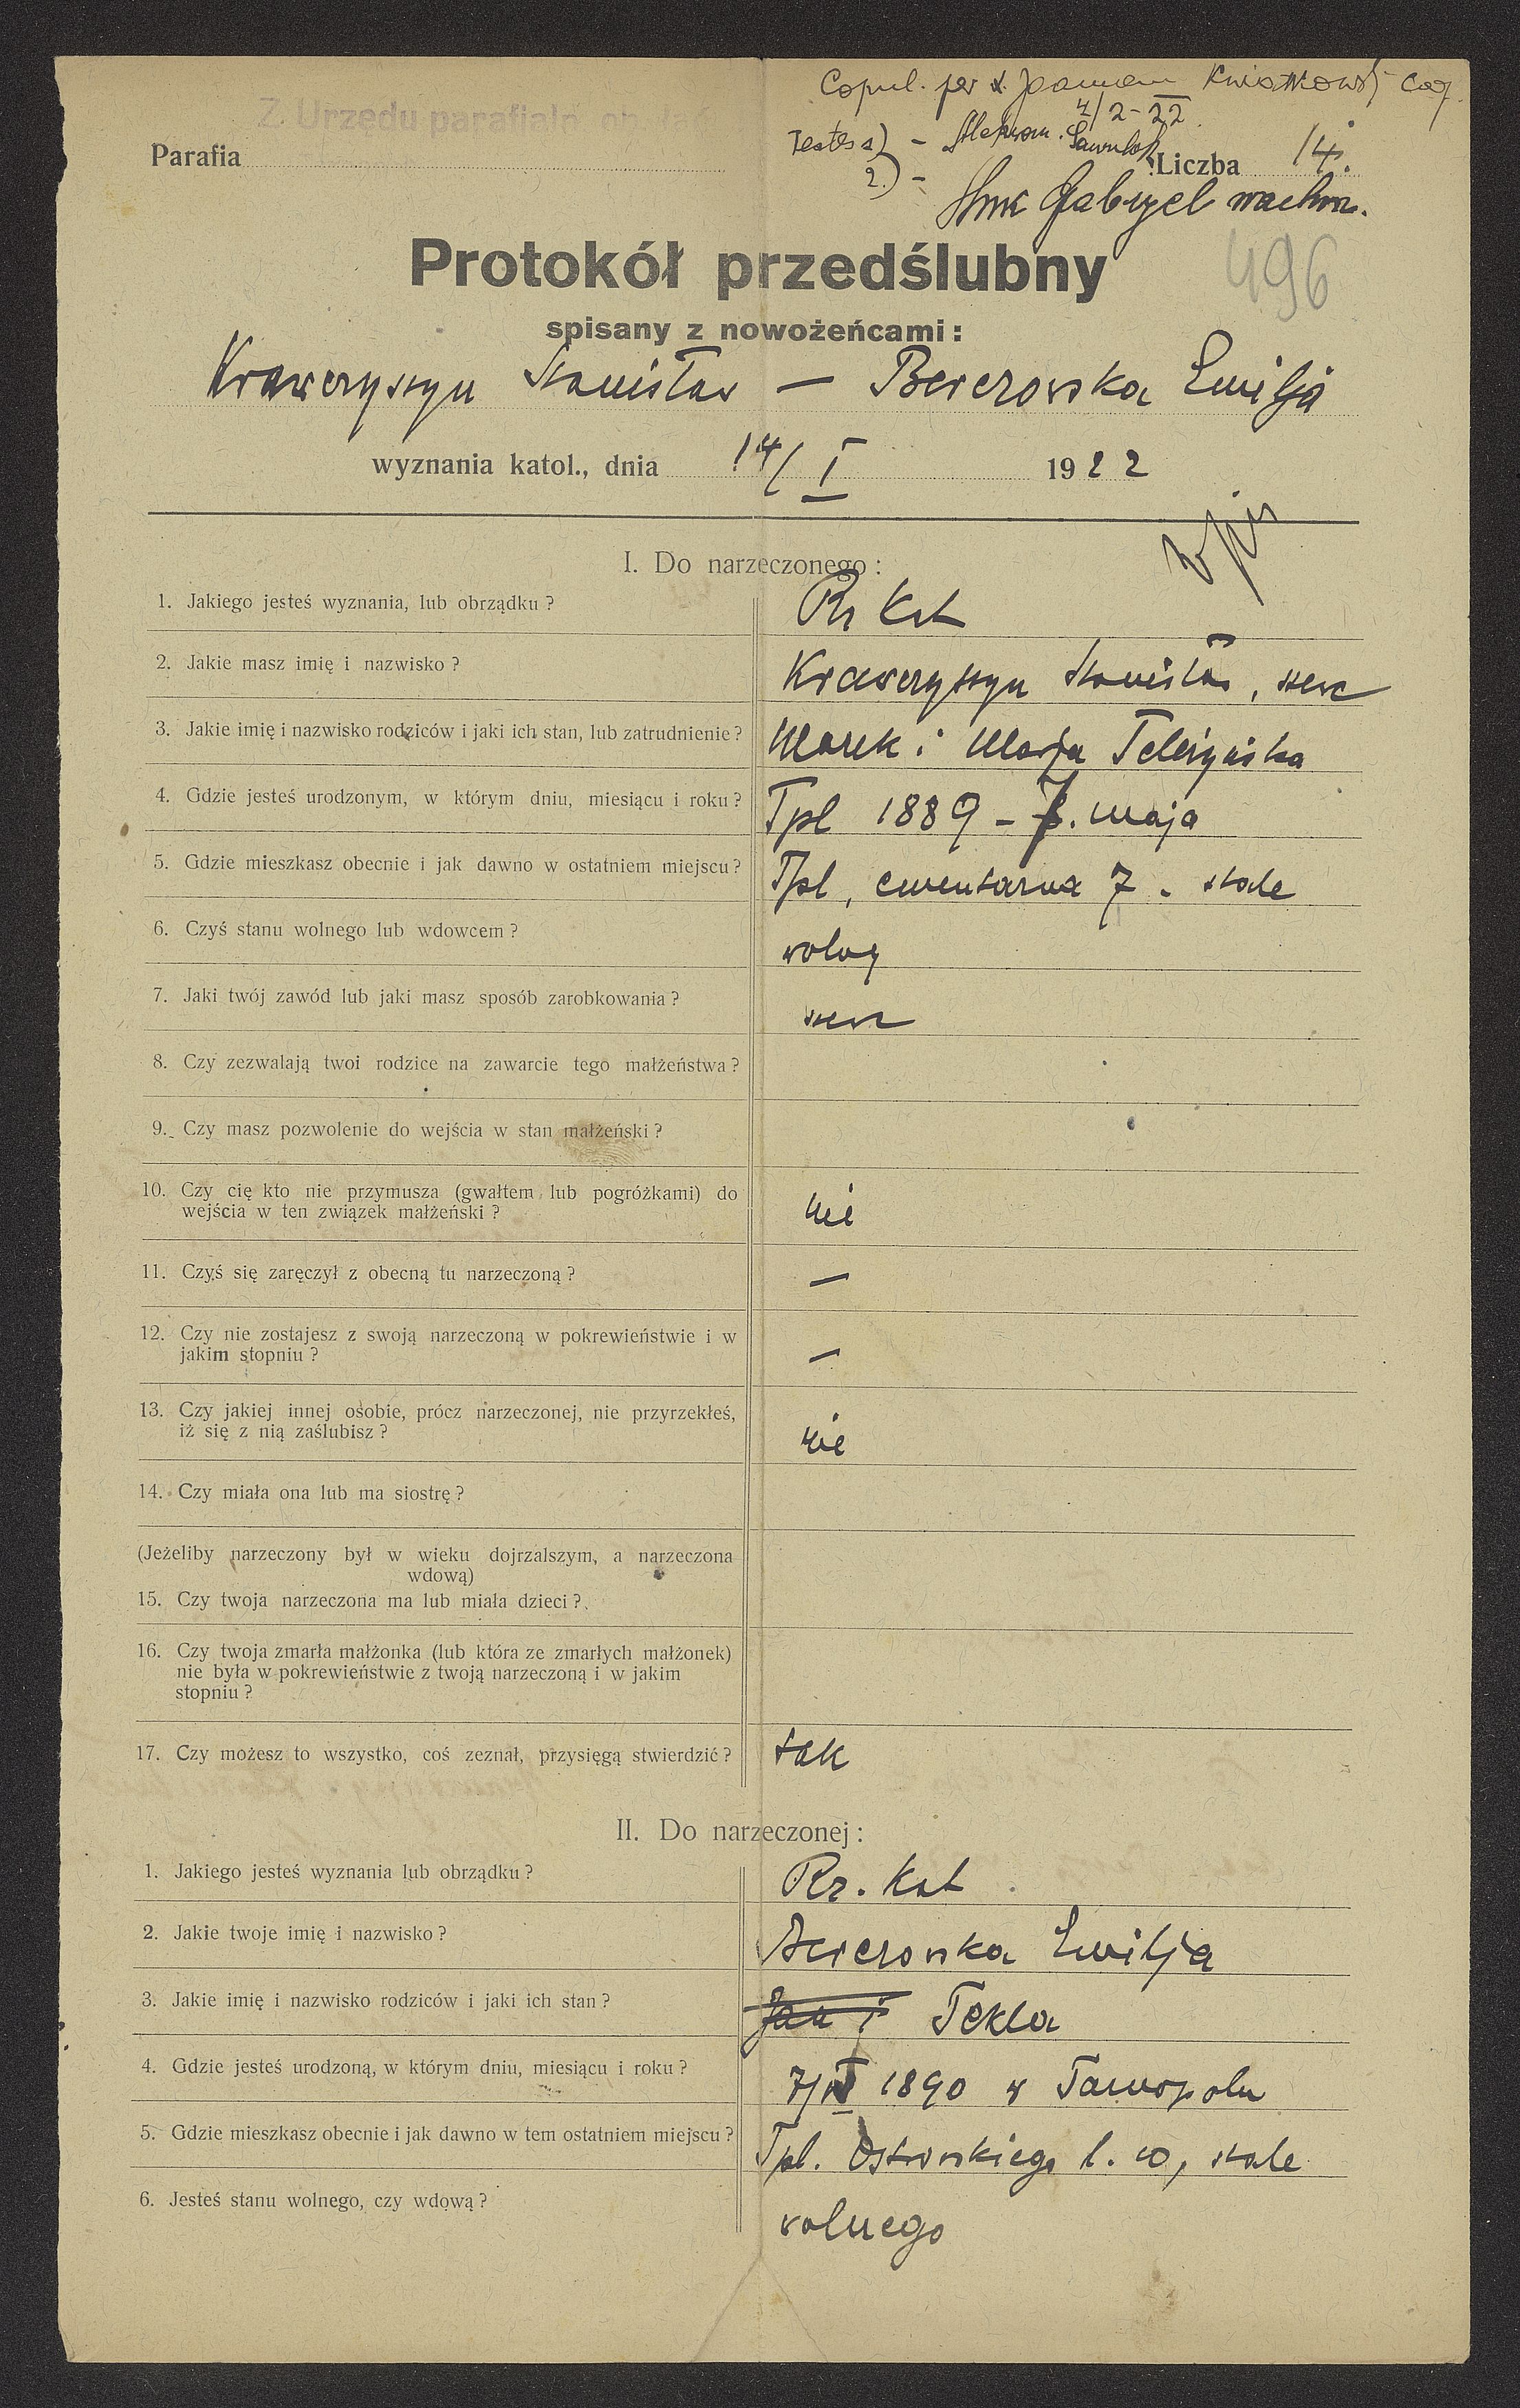 Copul. per x. Joannem Kwiatkowski coop.
4/2-22
Z Urzędu parafialn. ob. łać
Testes 1) –
Parafia
Liczba 14.
2.) – Gabryel
Protokół przedślubny
496
spisany z nowożeńcami:
Krawczyszyn Stanisław — Berezowska Emilja
wyznania katol., dnia 14/I 1922
I. Do narzeczonego:
1. Jakiego jesteś wyznania, lub obrządku? Rz kat
2. Jakie masz imię i nazwisko? Krawczyszyn Stanisław, szewc
3. Jakie imię i nazwisko rodziców i jaki ich stan, lub zatrudnienie? Marek i Marja
4. Gdzie jesteś urodzonym, w którym dniu, miesiącu i roku? Tpl 1889 – 7. maja
5. Gdzie mieszkasz obecnie i jak dawno w ostatniem miejscu? Tpl, cmentarna 7. stale
6. Czyś stanu wolnego lub wdowcem? wolny
7. Jaki twój zawód lub jaki masz sposób zarobkowania? szewc
8. Czy zezwalają twoi rodzice na zawarcie tego małżeństwa?
9. Czy masz pozwolenie do wejścia w stan małżeński?
10. Czy cię kto nie przymusza (gwałtem lub pogróżkami) do
wejścia w ten związek małżeński? nie
11. Czyś się zaręczył z obecną tu narzeczoną? —
12. Czy nie zostajesz z swoją narzeczoną w pokrewieństwie i w
jakim stopniu? —
13. Czy jakiej innej osobie, prócz narzeczonej, nie przyrzekłeś,
iż się z nią zaślubisz? nie
14. Czy miała ona lub ma siostrę?
(Jeżeliby narzeczony był w wieku dojrzalszym, a narzeczona
wdową)
15. Czy twoja narzeczona ma lub miała dzieci?
16. Czy twoja zmarła małżonka (lub która ze zmarłych małżonek)
nie była w pokrewieństwie z twoją narzeczoną i w jakim
stopniu?
17. Czy możesz to wszystko, coś zeznał, przysięgą stwierdzić? tak
II. Do narzeczonej:
1. Jakiego jesteś wyznania lub obrządku? Rz. kat
2. Jakie twoje imię i nazwisko? Berezowska Emilja
3. Jakie imię i nazwisko rodziców i jaki ich stan? Jan i Tekla
4. Gdzie jesteś urodzoną, w którym dniu, miesiącu i roku? 1890 w Tarnopolu
5. Gdzie mieszkasz obecnie i jak dawno w tem ostatniem miejscu? Tpl. Ostrowskiego l. 10, stale
6. Jesteś stanu wolnego, czy wdową? wolnego